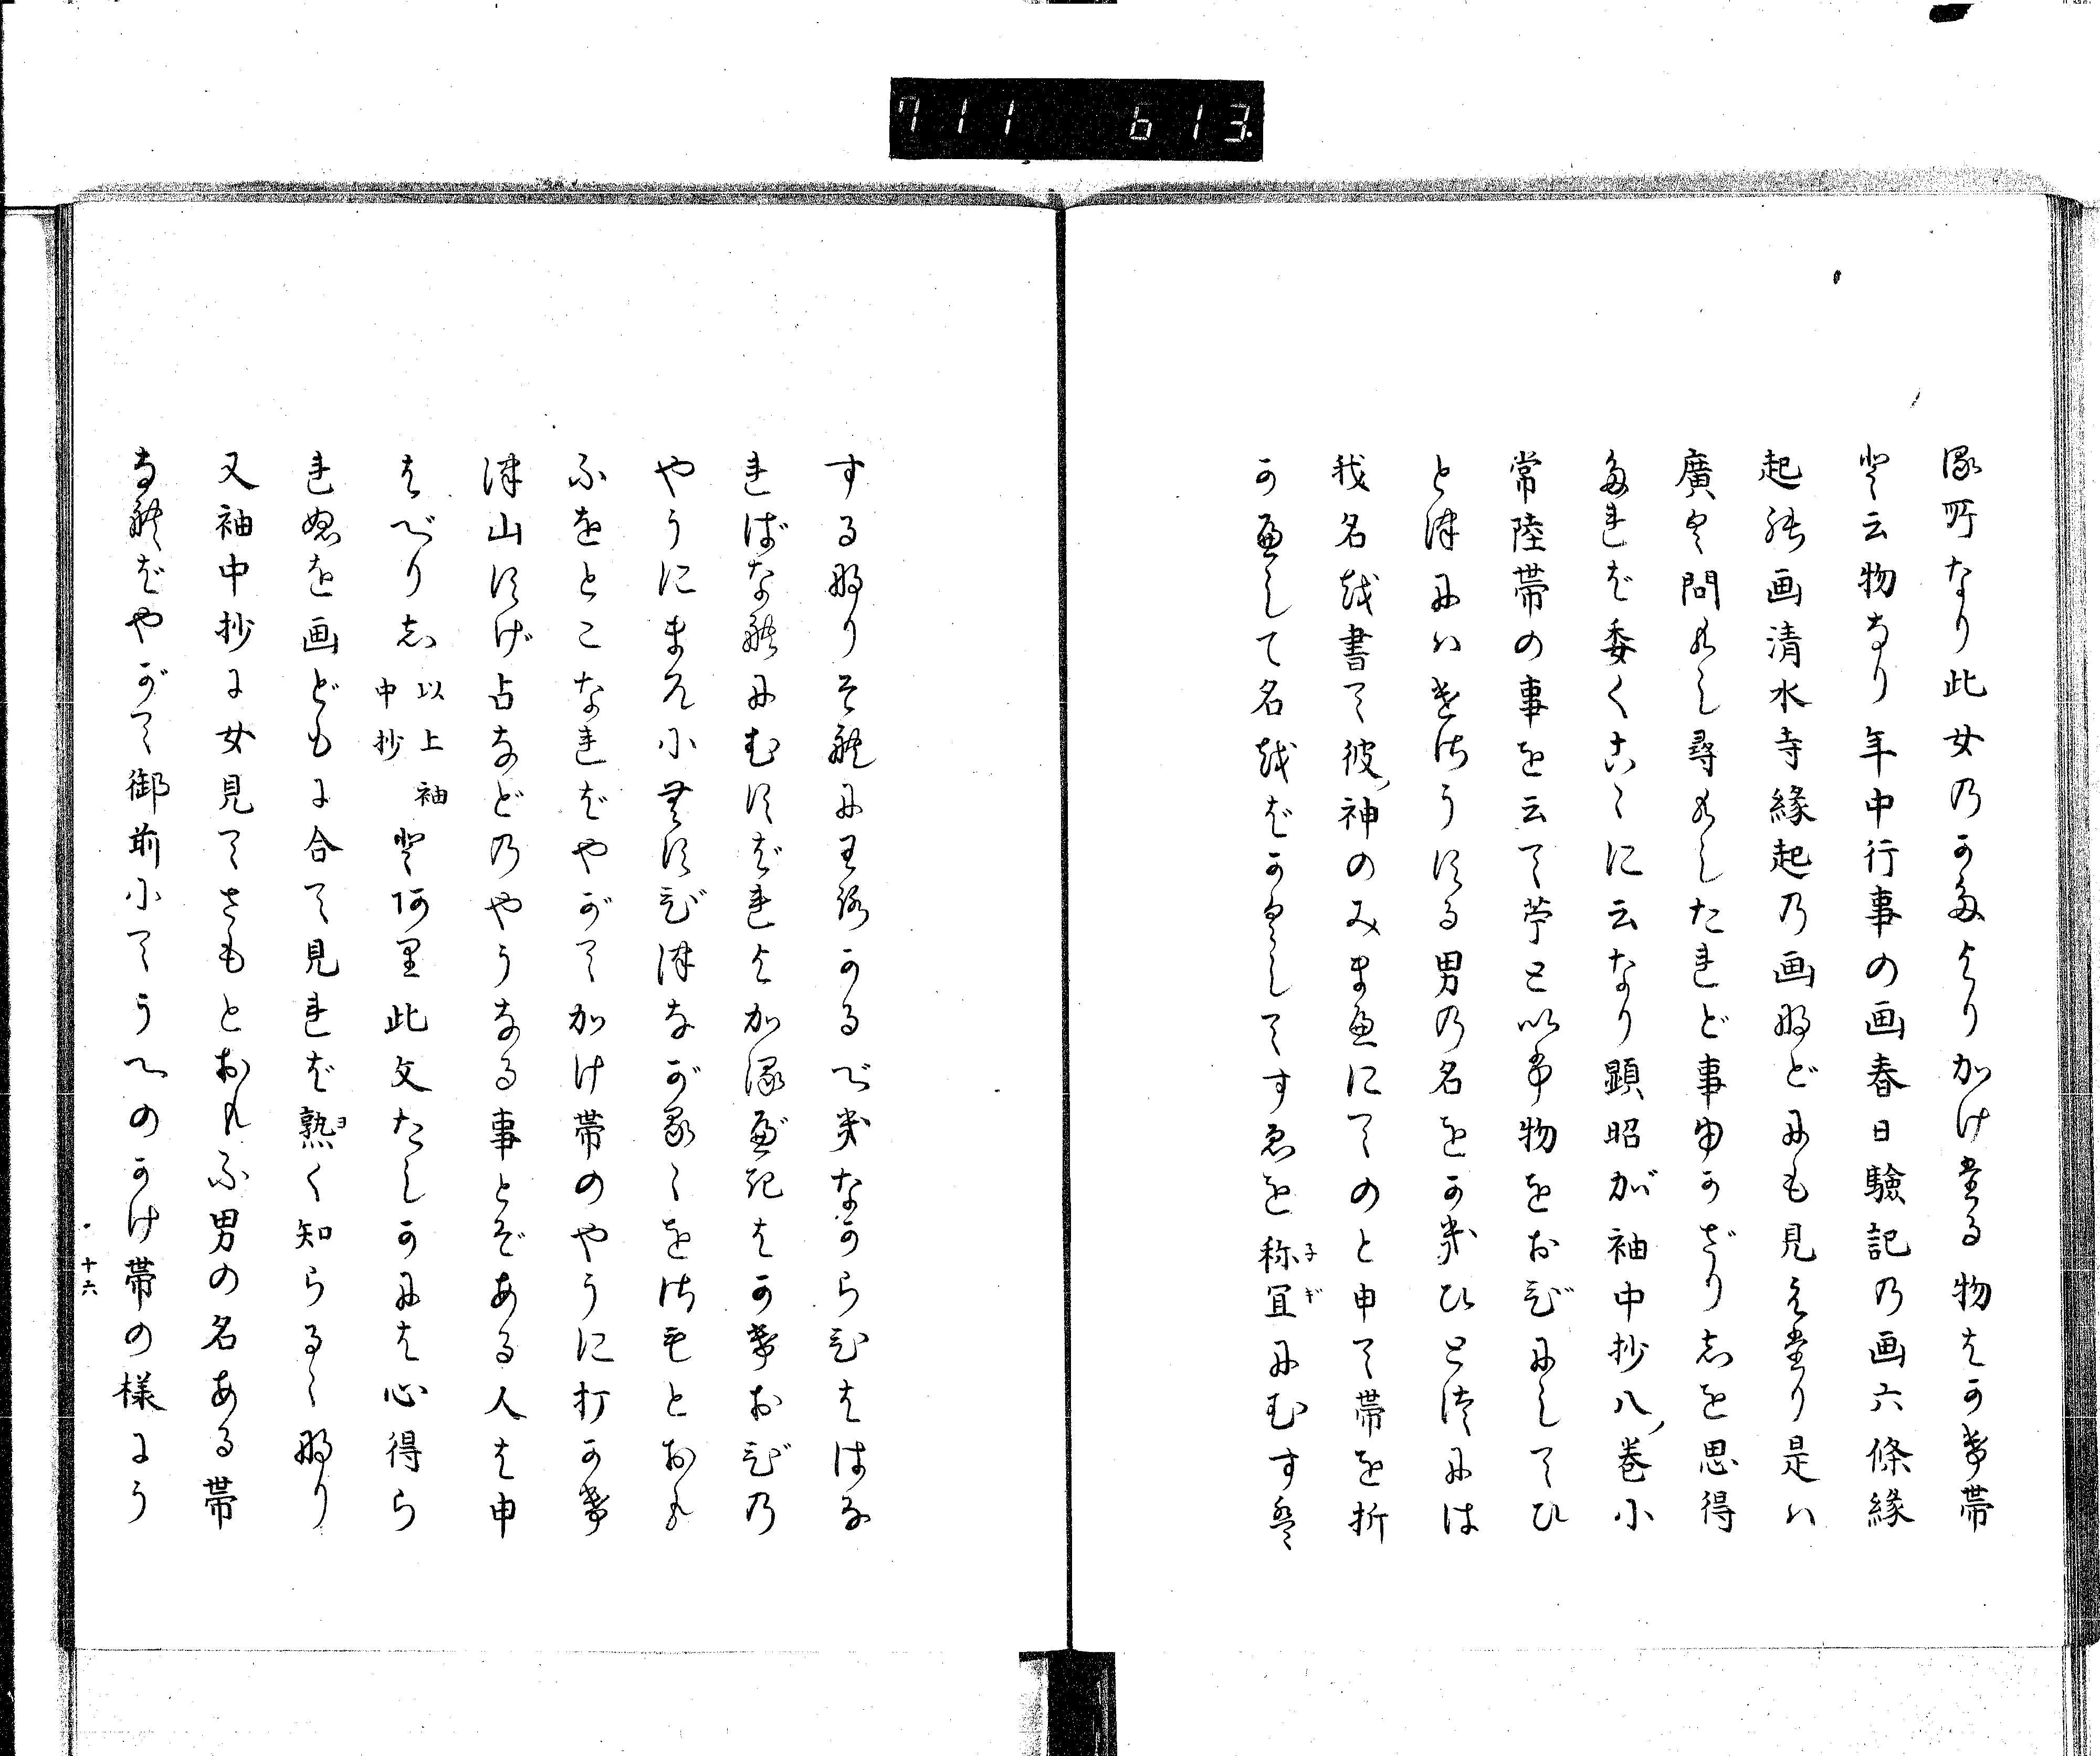 る所なり此女のかたよりかけたる物をかけ帯
と云物なり年中行事の画春日驗記の画六條縁
起絵画清水寺縁起の画などにも見えたり是ハ
廣く問もし尋もしたれど事ゆかざりしを思得
たれば委くこゝに云なり顕昭が袖中抄八巻に
常陸帯の事を云て苧といふ物をおびにしてひ
とつにハけさうする男の名をかきひとつには
我名を書て彼神のみまへにてのと申て帯を折
かへして名をばかくしてすゑを祢宜(ネギ)にむすば
するなりそれにわろかるべきなからひをはな
ればなれにむすばれよかるべきはかけおびの
やうにまろにむすびつながるゝをさもとおも
ふをとこなればやがてかけ帯のやうに打かけ
つ山すげ占などのやうなる事とぞある人は申
はべりし以上袖中抄とあり此文たしかには心得ら
れぬを画どもに合て見れば熟(ヨ)く知らるゝなり
又袖中抄に女見てさもとおもふ男の名ある帯
なればやがて御前にてうへのかけ帯の様にう
十六
711 613